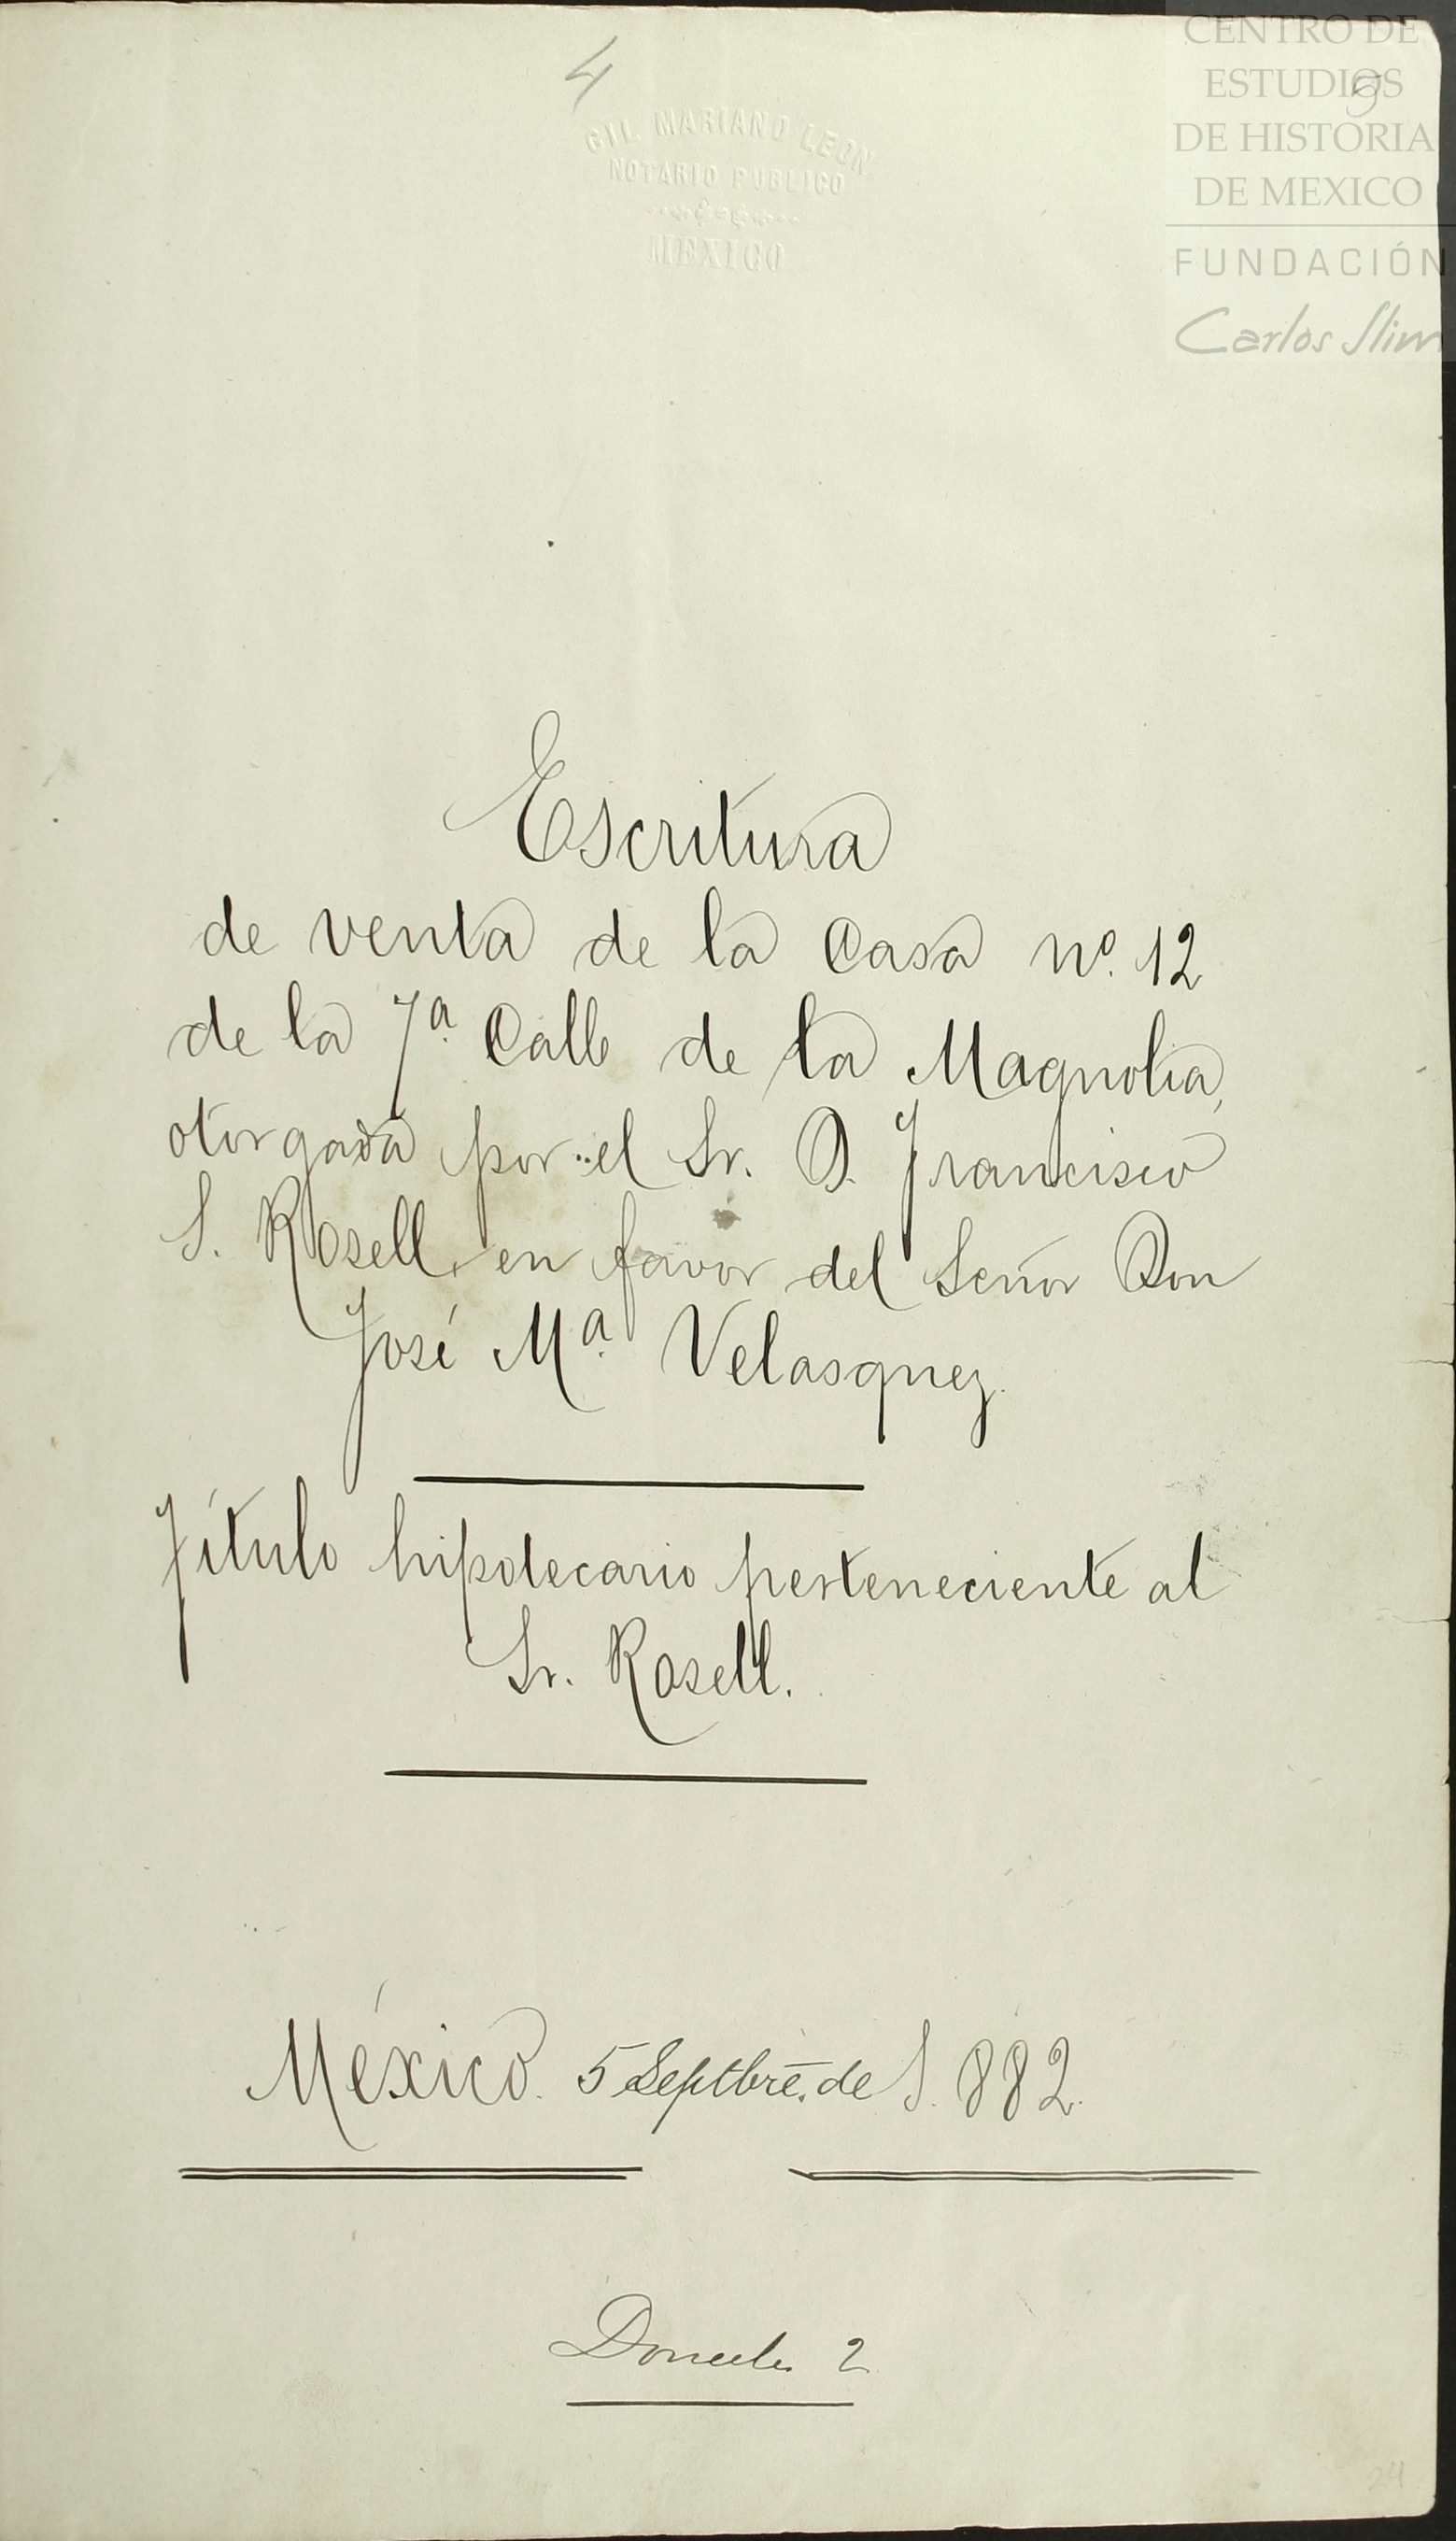 4
GIL MARIANO LEON
NOTARIO PUBLICO
MEXICO
CENTRO DE
ESTUDIOS
DE HISTORIA
DE MEXICO
FUNDACIÓN
Carlos Slim
Escritura
de venta de la Casa nº. 12
de la 7ª. Calle de la Magnolia,
otorgada por el Sr. D. Francisco
S. Rosell, en favor del Señor Don
José Mª. Velasquez.
Título hipotecario perteneciente al
Sr. Rosell.
México. 5 Septbre. de 1.882.
Donceles 2
24